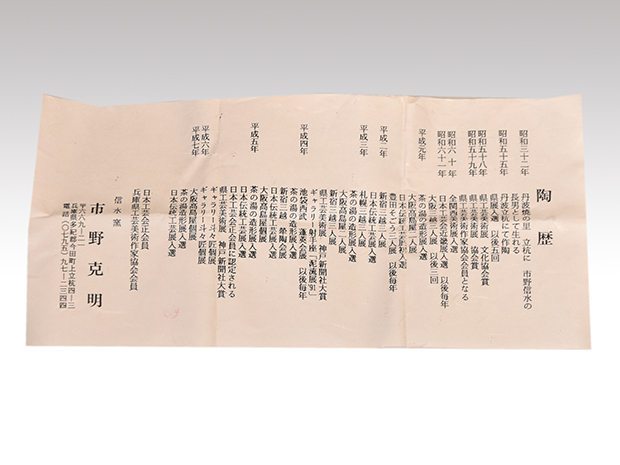 陶歴
昭和三十二年 丹波焼の里 立杭に 市野信水の
長男として生れる
昭和五十五年 丹波立杭にて作陶
県展入選 以後五回
昭和五十八年 県工芸美術展 文化協会賞
昭和五十九年 県工芸美術展 協会賞
県工芸美術作家協会会員となる
昭和六十年 全関西美術展入選
昭和六十一年 日本工芸会近畿展入選 以後毎年
大阪三越二人展 以後三回
茶の湯の造形展入選
平成元年 大阪高島屋二人展
日本伝統工芸展初入選
豊田そごう三人展 以後毎年
平成二年 新宿三越三人展
日本伝統工芸展入選
平成三年 札幌三越三人展
茶の湯の造形展入選
大阪高島屋二人展
新宿三越三人展
県工芸美術展 神戸新聞社大賞
ギャラリー射手座「泥流展91」
平成四年 池袋西武 蓬萊会展 以後毎年
茶の湯の造形展入選
新宿三越
日本伝統工芸展入選
大阪高島屋個展
平成五年 茶の湯の造形展入選
日本伝統工芸展入選
日本工芸会正会員に認定される
県工芸美術展 神戸新聞社大賞
平成六年 ギャラリー斗々匠個展
平成七年 ギャラリー斗々匠個展
大阪高島屋個展
茶の湯の造形展入選
日本伝統工芸展入選
日本工芸会正会員
兵庫県工芸美術作家協会会員
信水窯
市野克明
〒六六九ー二一
兵庫県多紀郡今田町上立杭四ー三
電話(〇七九五)九七ー二三四四